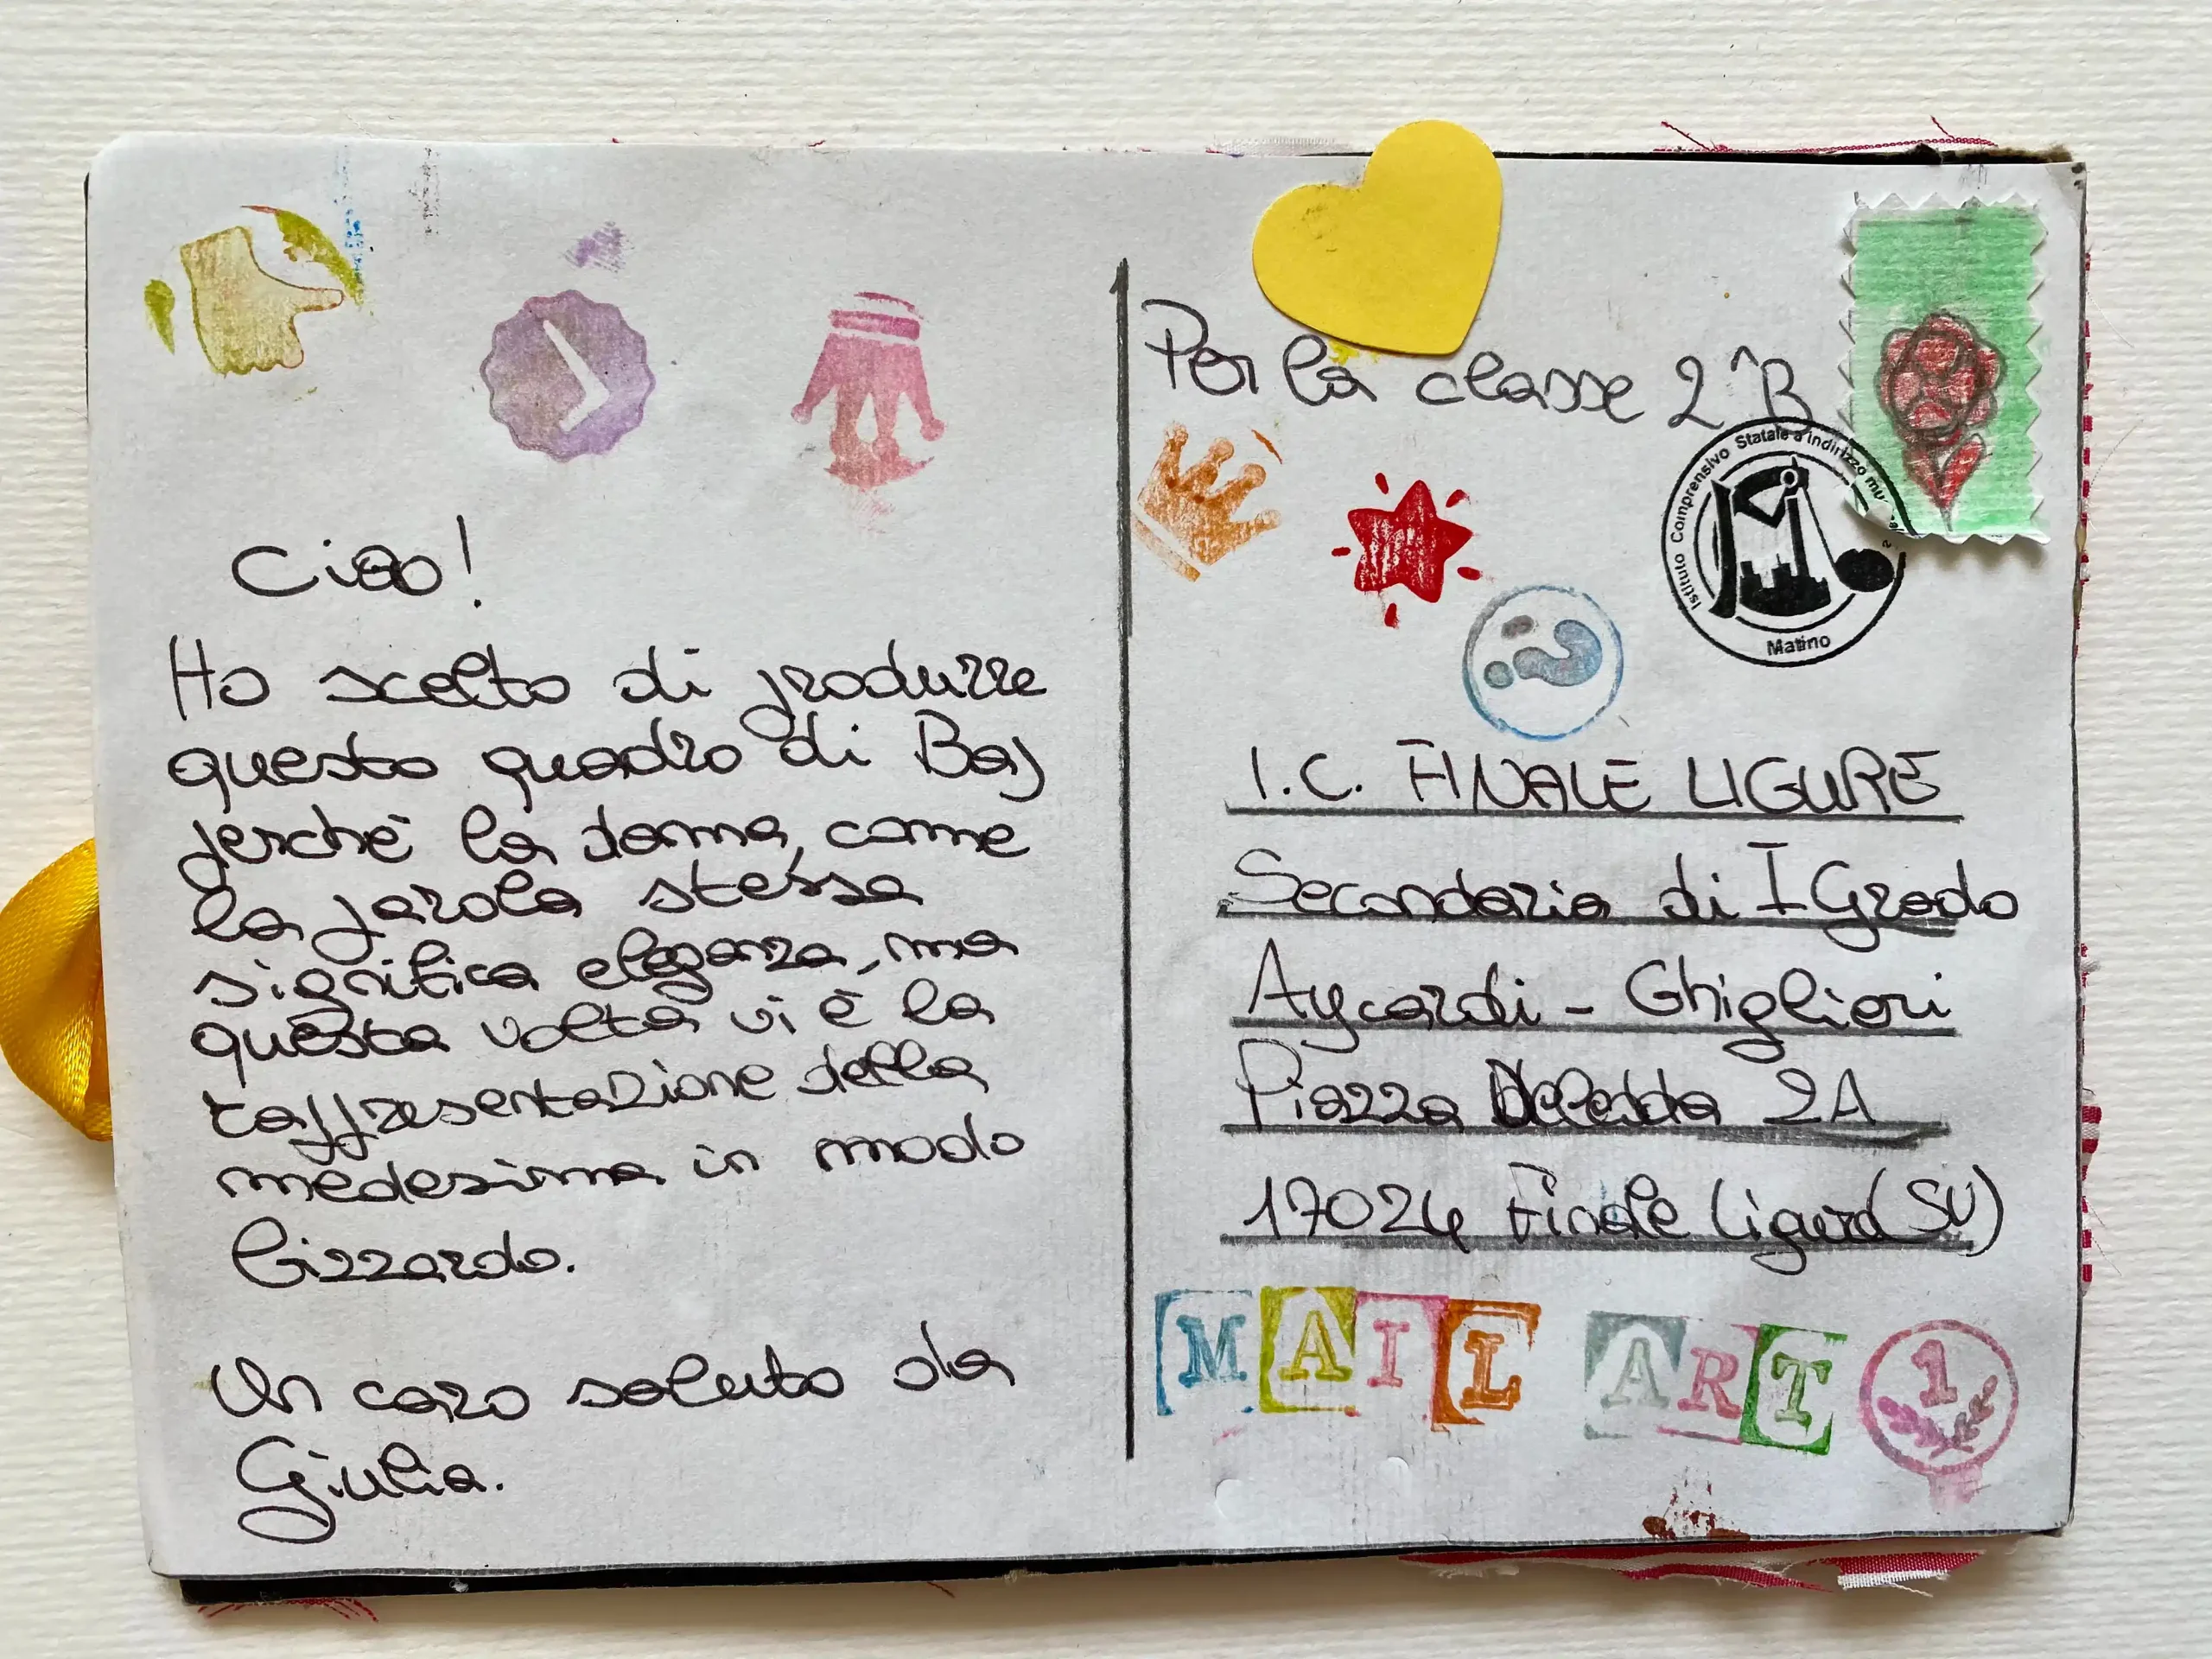 Ciao!
Ho scelto di produrre
questo quadro di Baj
perchè la donna, come
la parola stessa
significa eleganza, ma
questa volta vi è la
rappresentazione della
medesima in modo
bizzardo.
Un caro saluto da
Giulia.
Per la classe 2^B
Istituto Comprensivo Statale a indirizzo
Matino
I.C. FINALE LIGURE
Secondaria di I Grado
Aycardi - Ghiglieri
Piazza Deledda 2A
17024 Finale Ligure (SV)
MAIL ART 1